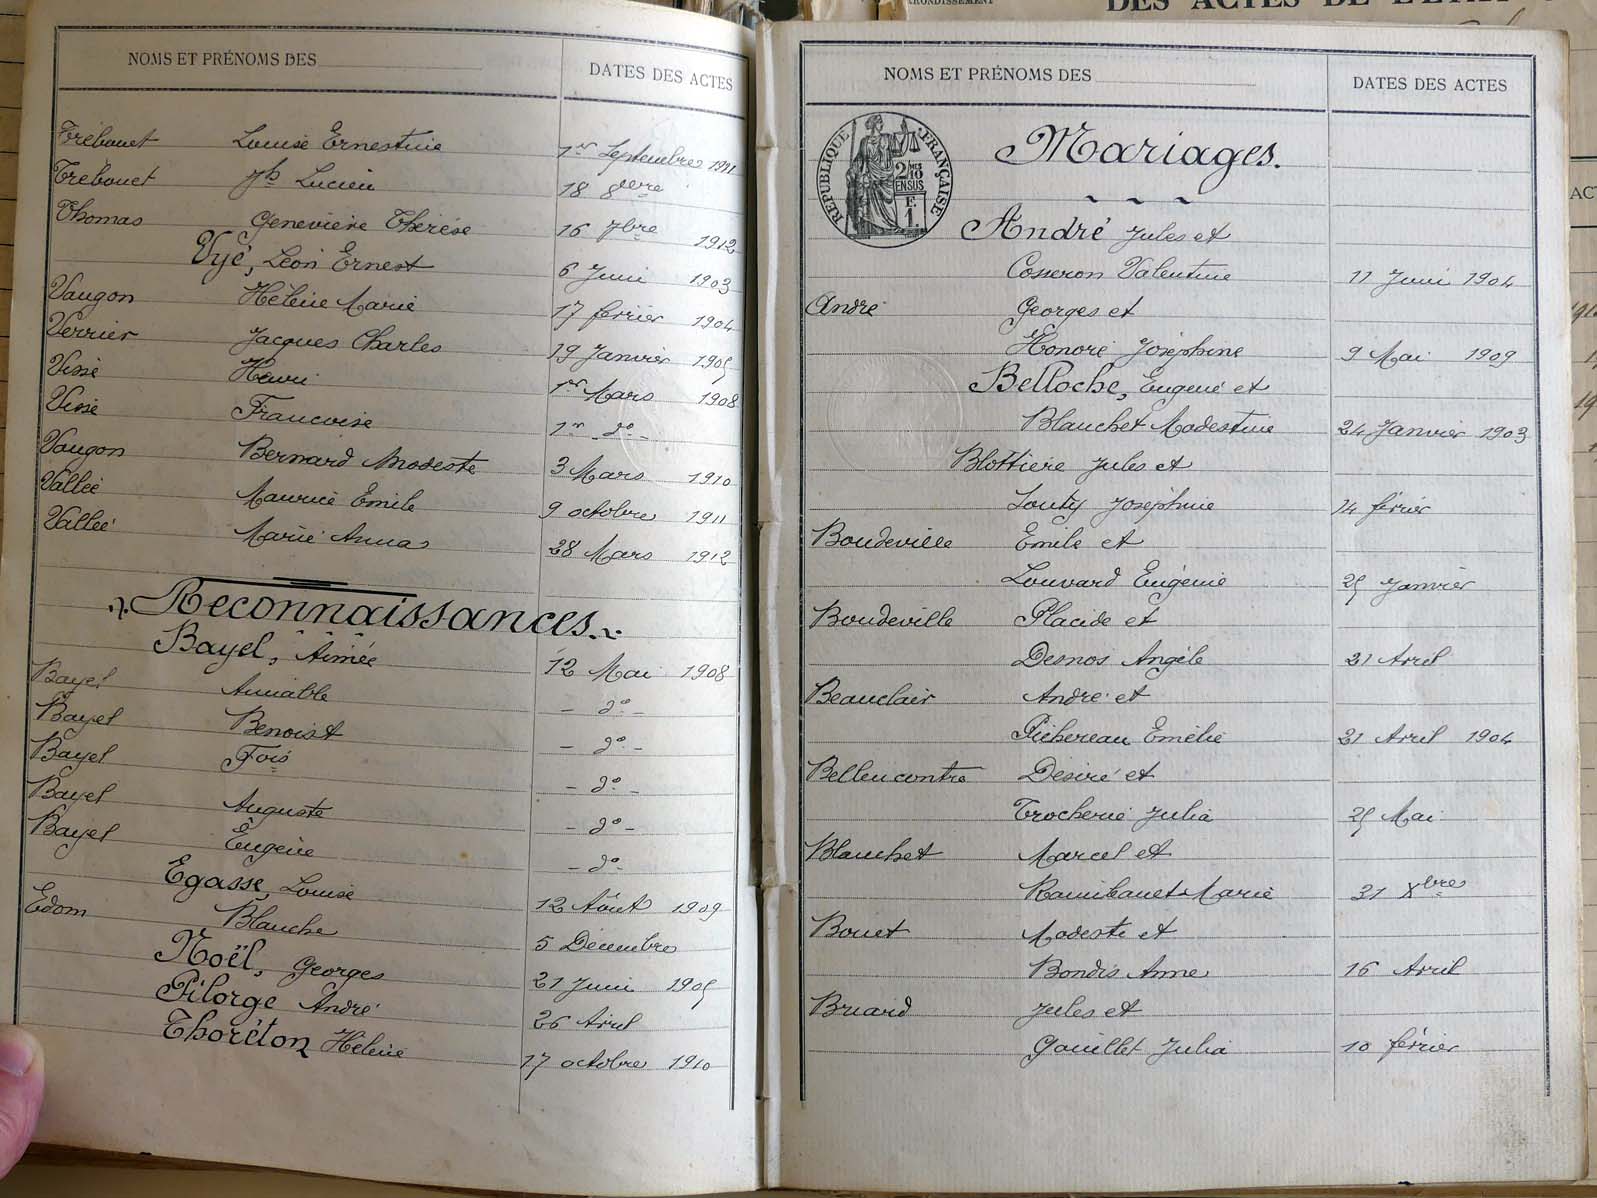 NOMS ET PRÉNOMS DES
DATES DES ACTES
Trébouet Louise Ernestine 1er Septembre 1911
Trébouet Jh Lucien 18 8bre
Thomas Geneviève Thérèse 16 7bre 1912
Vyé, Léon Ernest 6 Juin 1903
Vaugon Hélène Marie 17 février 1904
Verrier Jacques Charles 19 Janvier 1905
Vissé Henri 1er Mars 1908
Vissé Francoise 1er do
Vaugon Bernard Modeste 3 Mars 1910
Vallée Maurice Emile 9 octobre 1911
Vallée Marie Anna 28 Mars 1912
Reconnaissances.
Bayel, Aimée 12 Mai 1908
Bayel Amiable - do -
Bayel Benoist - do -
Bayel Fois - do -
Bayel Auguste - do -
Bayel Eugène - do
Egasse, Louise 12 Août 1909
Edom Blanche 5 Décembre
Noël, Georges 21 Juin 1905
Pilorge André 26 Avril
Thoréton Hélène 17 octobre 1910
DES ACTES DE L'ÉTAT
NOMS ET PRÉNOMS DES
DATES DES ACTES
RÉPUBLIQUE FRANÇAISE
2/10
EN SUS
F.
1.
Mariages.
André Jules et
Cosseron Valentine 11 Juin 1904
André Georges et
Honoré Joséphine 9 Mai 1909
Belloche, Eugène et
Blanchet Modestine 24 Janvier 1903
Blottière Jules et
Louty Joséphine 14 février
Boudeville Emile et
Louvard Eugénie 25 Janvier
Boudeville Placide et
Desnos Angèle 21 Avril
Beauclair André et
Pichereau Emélie 21 Avril 1904
Bellencontre Désiré et
Trocherie Julia 25 Mai
Blanchet Marcel et
Marie 31 Xbre
Bouet Modeste et
Bondis Anne 16 Avril
Bruard Jules et
Gouillet Julia 10 février